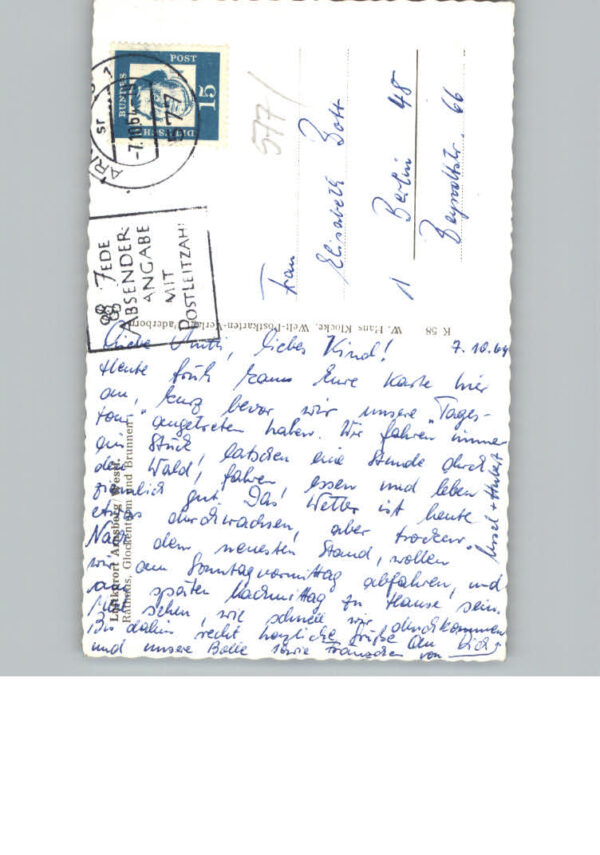 DEUTSCHE
BUNDES
POST
15
-7.1064
577/
JEDE
ABSENDER-
ANGABE
MIT
POSTLEITZAHL
Frau
Elisabeth Bott
1 Berlin 48
66
K 58
W. Hans Klocke, Welt-Postkarten-Verlag, Paderborn
Luftkurort Arnsberg/Westf.
Rathaus, Glockenturm und Brunnen
Liebe Mutti, liebes Kind! 7.10.64
Heute früh kam Eure Karte hier
an, kurz bevor wir unsere "Tages-
tour" angetreten haben. Wir fahren immer
ein Stück, latschen eine Stunde durch
den Wald, fahren, essen und leben
ziemlich gut. Das Wetter ist heute
etwas durchwachsen, aber trocken.
Nach dem neuesten Stand, wollen
wir am Sonntagvormittag abfahren, und
am späten Nachmittag zu Hause sein.
Mal sehen, wie schnell wir durchkommen
Bis dahin recht herzliche Grüße an Dich
und unsere sowie von
Ursel + Hubert